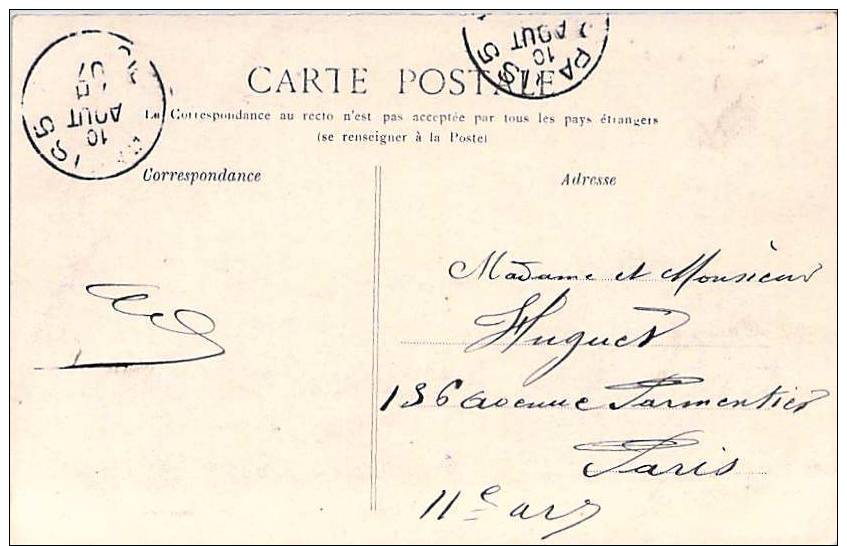 CARTE POSTALE
La Correspondance au recto n'est pas acceptée par tous les pays étrangers
(se renseigner à la Poste)
Correspondance
Adresse
Madame et Monsieur
Huguet
136 avenue Parmentier
Paris
11e arr
PARIS 5
10
AOUT
10
AOUT
07